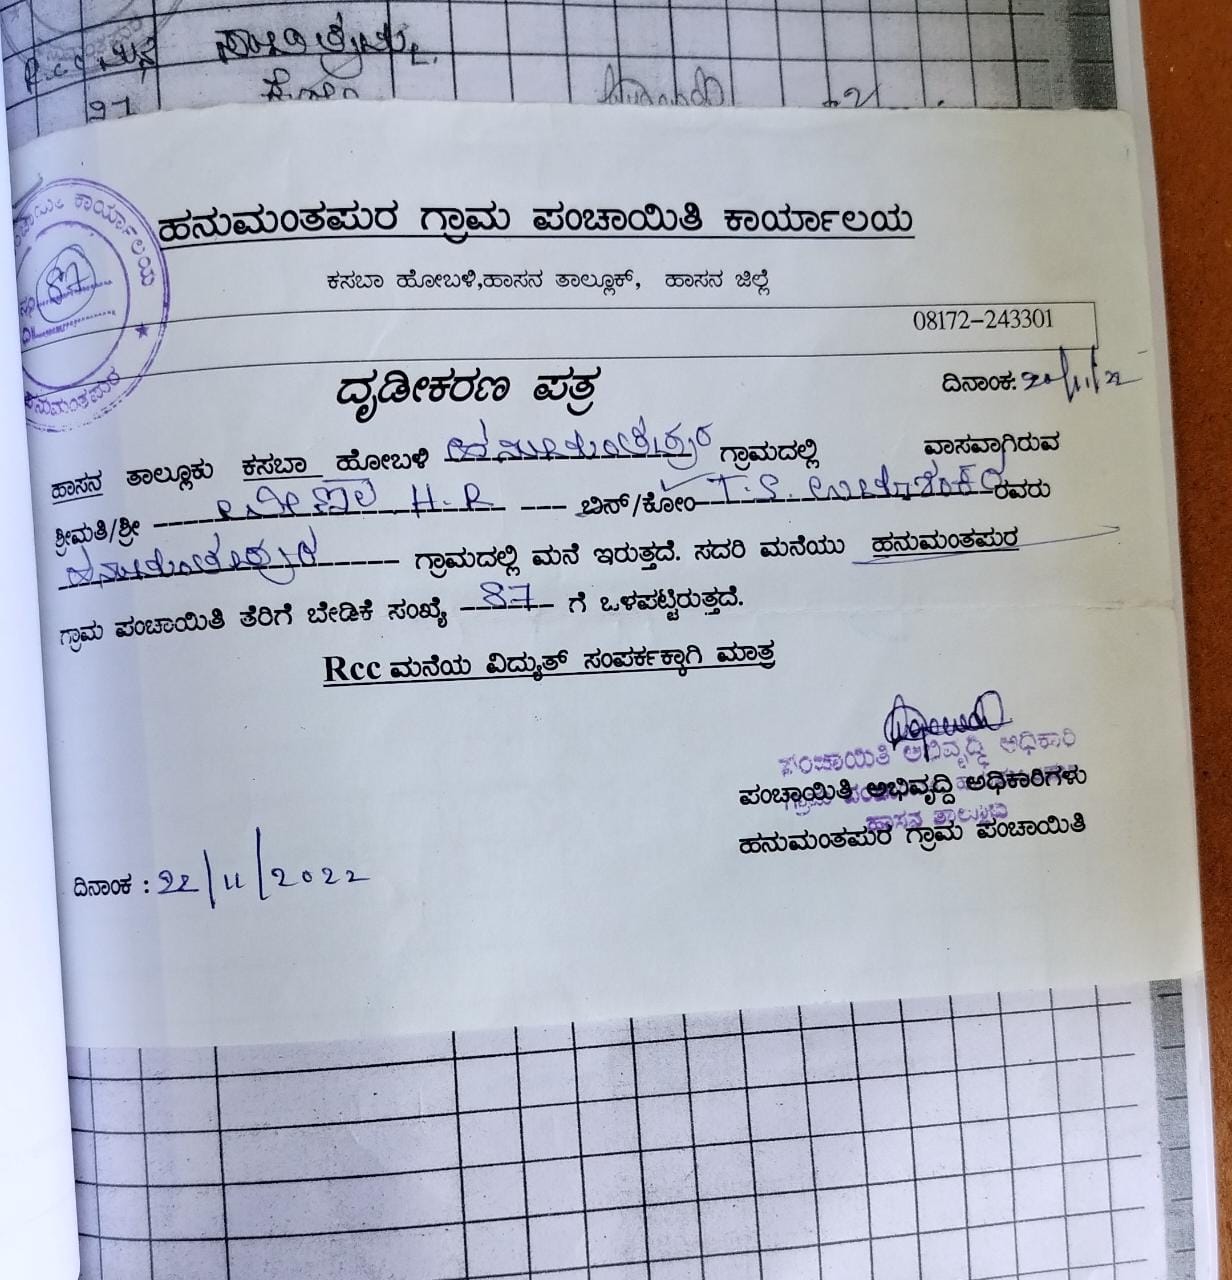 R.C.C ಮನೆ
97
ಹನುಮಂತಪುರ ಗ್ರಾಮ ಪಂಚಾಯಿತಿ ಕಾರ್ಯಾಲಯ
ಕಸಬಾ ಹೋಬಳಿ,ಹಾಸನ ತಾಲ್ಲೂಕ್, ಹಾಸನ ಜಿಲ್ಲೆ
08172-243301
ಕಾರ್ಯಾಲಯ
87
ಹನುಮಂತಪುರ
ದೃಡೀಕರಣ ಪತ್ರ
ದಿನಾಂಕ: 20/11/22
ಹಾಸನ ತಾಲ್ಲೂಕು ಕಸಬಾ ಹೋಬಳಿ ಹನುಮಂತಪುರ ಗ್ರಾಮದಲ್ಲಿ ವಾಸವಾಗಿರುವ
ಶ್ರೀಮತಿ/ಶ್ರೀ H.R ಬಿನ್/ಕೋಂ T.S. ರವರು
ಹನುಮಂತಪುರ ಗ್ರಾಮದಲ್ಲಿ ಮನೆ ಇರುತ್ತದೆ. ಸದರಿ ಮನೆಯು ಹನುಮಂತಪುರ
ಗ್ರಾಮ ಪಂಚಾಯಿತಿ ತೆರಿಗೆ ಬೇಡಿಕೆ ಸಂಖ್ಯೆ 87 ಗೆ ಒಳಪಟ್ಟಿರುತ್ತದೆ.
Rcc ಮನೆಯ ವಿದ್ಯುತ್ ಸಂಪರ್ಕಕ್ಕಾಗಿ ಮಾತ್ರ
ಪಂಚಾಯಿತಿ ಅಭಿವೃದ್ಧಿ ಅಧಿಕಾರಿ
ಪಂಚಾಯಿತಿ ಅಭಿವೃದ್ದಿ ಅಧಿಕಾರಿಗಳು
ಹಾಸನ ತಾಲ್ಲೂಕು
ಹನುಮಂತಪುರ ಗ್ರಾಮ ಪಂಚಾಯಿತಿ
ದಿನಾಂಕ : 22/11/2022